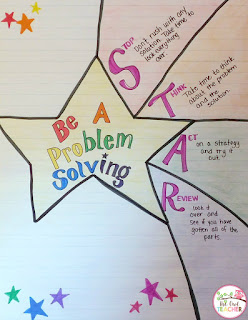 Be A
Problem
Solving
STOP
Don't rush with any
solution. Take time to
look everything
over.
THINK
Take time to think
about the problem
and the
solution.
ACT
on a strategy
and try it
out.
REVIEW
look it
over and
see if you have
gotten all of the
parts.
TEACHER